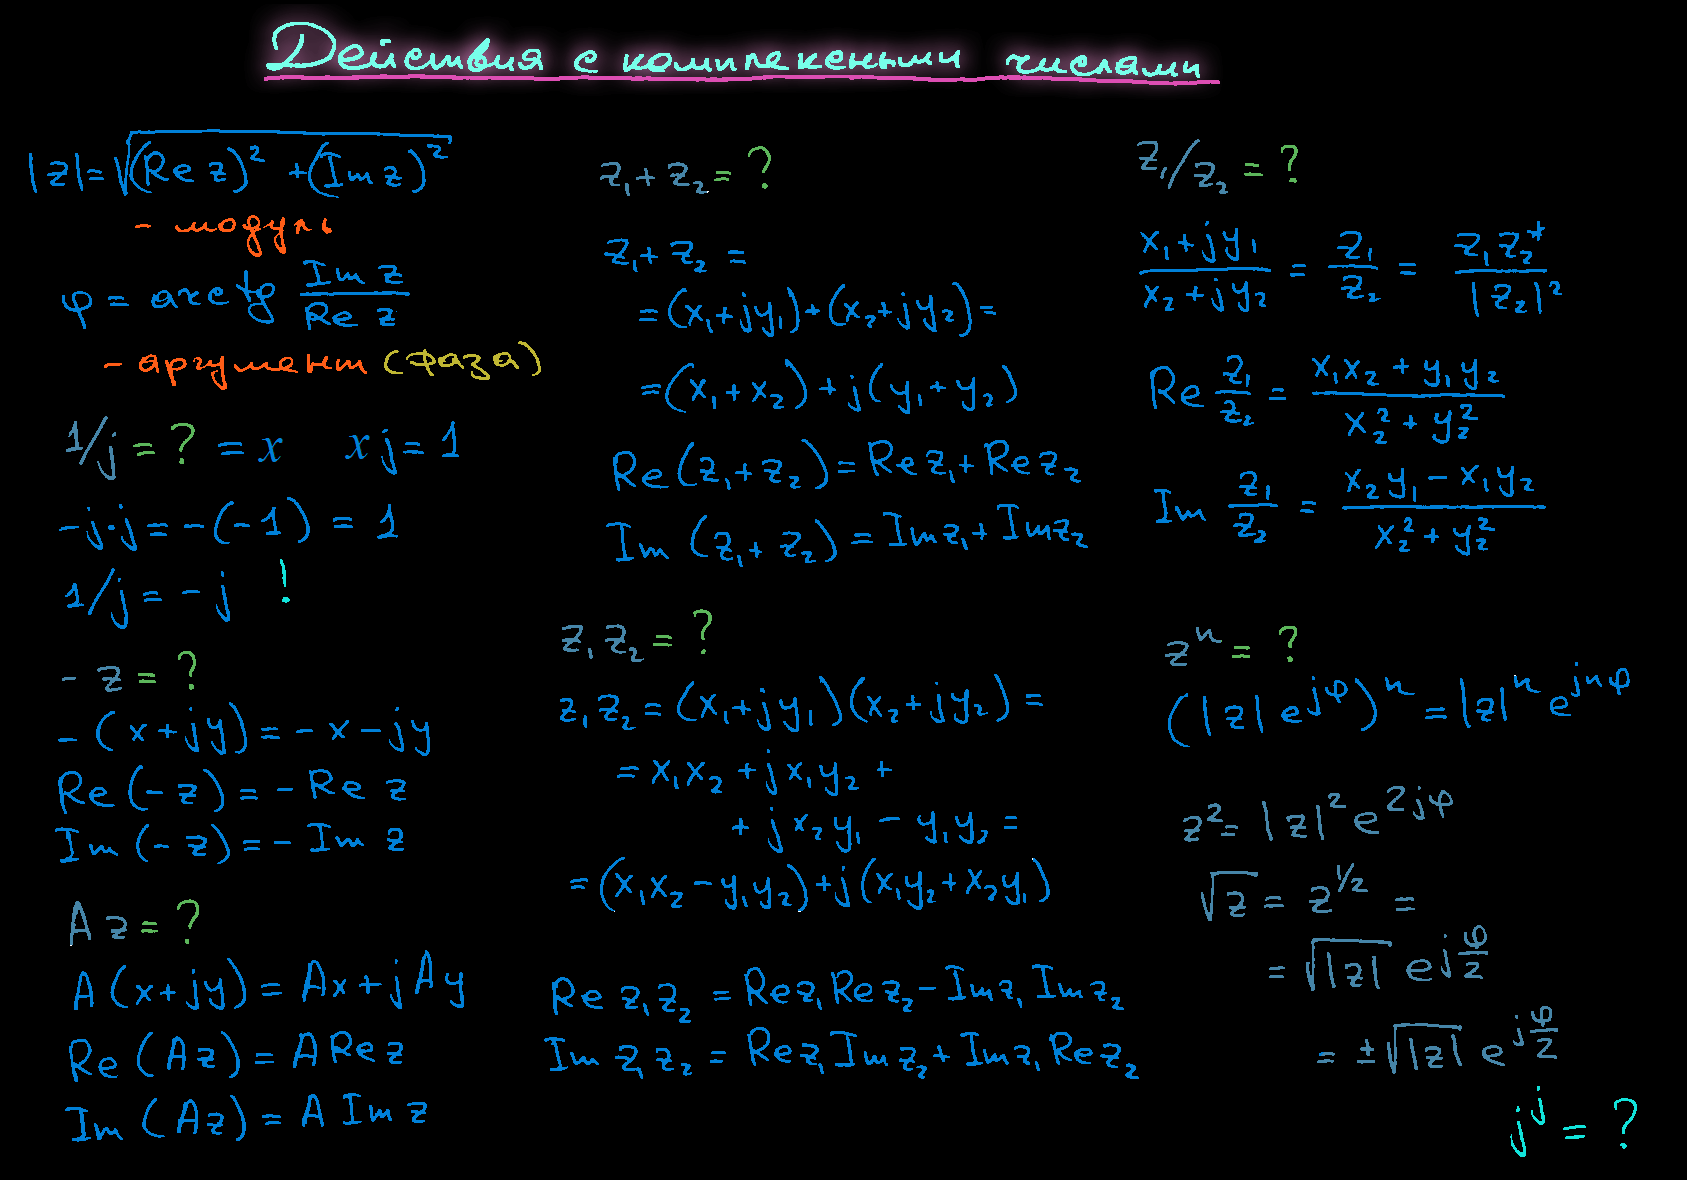 Действия с комплексными числами
|z| = √((Re z)² + (Im z)²)
- модуль
φ = arctg Im z / Re z
- аргумент (фаза)
1/j = ? = x xj = 1
-j·j = -(-1) = 1
1/j = -j !
- z = ?
- (x+jy) = - x - jy
Re (-z) = - Re z
Im (-z) = - Im z
A z = ?
A (x+jy) = Ax + jAy
Re (Az) = A Re z
Im (Az) = A Im z
z₁ + z₂ = ?
z₁ + z₂ =
= (x₁+jy₁) + (x₂+jy₂) =
= (x₁ + x₂) + j (y₁ + y₂)
Re (z₁ + z₂) = Re z₁ + Re z₂
Im (z₁ + z₂) = Im z₁ + Im z₂
z₁ z₂ = ?
z₁ z₂ = (x₁+jy₁)(x₂+jy₂) =
= x₁x₂ + jx₁y₂ +
+ jx₂y₁ - y₁y₂ =
= (x₁x₂ - y₁y₂) + j (x₁y₂ + x₂y₁)
Re z₁z₂ = Re z₁ Re z₂ - Im z₁ Im z₂
Im z₁z₂ = Re z₁ Im z₂ + Im z₁ Re z₂
z₁/z₂ = ?
(x₁ + jy₁)/(x₂ + jy₂) = z₁/z₂ = z₁z₂*/|z₂|²
Re z₁/z₂ = (x₁x₂ + y₁y₂)/(x₂² + y₂²)
Im z₁/z₂ = (x₂y₁ - x₁y₂)/(x₂² + y₂²)
zⁿ = ?
(|z| e^{jφ})ⁿ = |z|ⁿ e^{jnφ}
z² = |z|² e^{2jφ}
√z = z^{1/2} =
= √|z| e^{jφ/2}
= ±√|z| e^{jφ/2}
j^j = ?